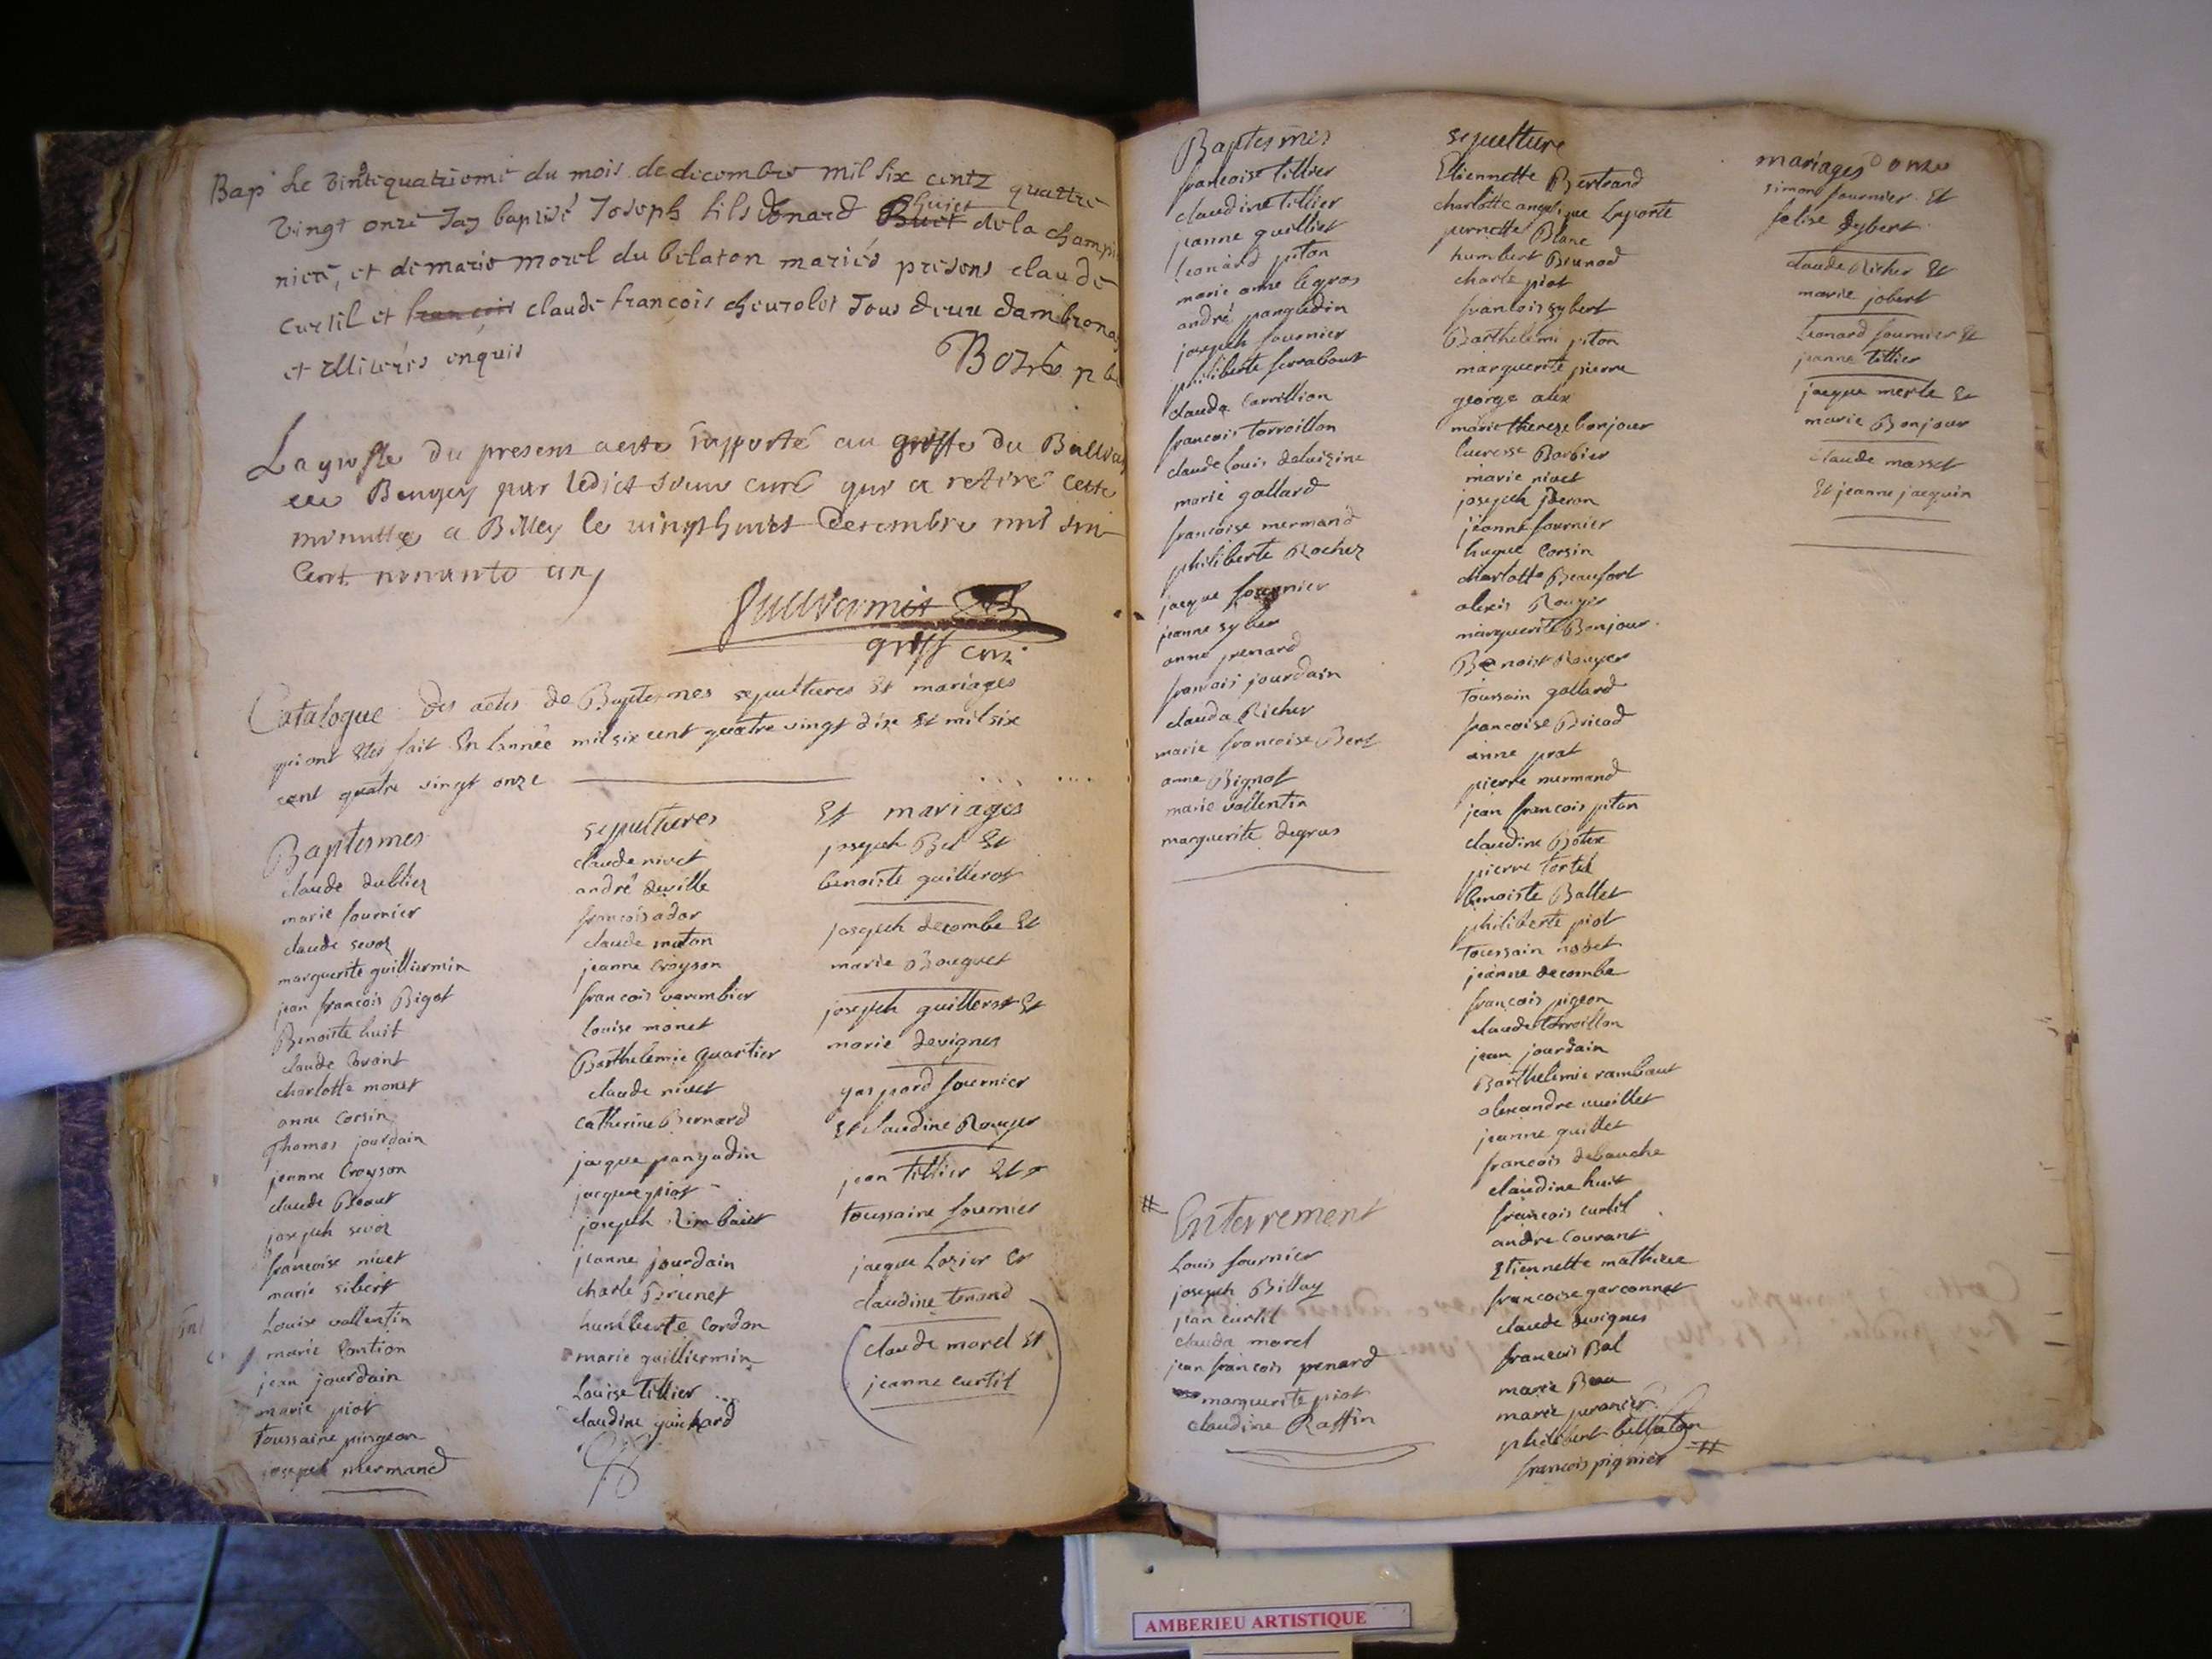 Bap Le vintequatriemé du mois de decembre mil six centz quattre
huiet
vingt onze Jay baptisé Joseph fils denard Buet de la champi
niere, et de marie morel du belaton mariés presens claude
curtil et françois claude françois cheurolet tous deux dambronay
et illiterés enquis
La grosse du present acte rapporté au greffe du Balliage
de Beugey par ledict sieur curé qui a retiré cette
minutte a Belley le vingt huict decembre mil six
Cent nonante un
Guilliermin
greff com
Catalogue des actes de Baptesmes sepultures Et mariages
qui ont Esté fait En lannée mil six cent quatre vingt dix Et mil six
cent quatre vingt onze
Baptesmes
claude dublier
marie fournier
claude sevoz
marguerite guilliermin
jean françois Bigot
Benoiste huit
claude
charlotte monet
anne Corsin
Thomas jourdain
jeanne Croyson
claude
joseph sevoz
francoise nivet
marie sibert
Louise vallentin
marie
jean jourdain
marie piot
toussaine pingeon
joseph mermand
sepultures
claude nivet
andré deville
françois ador
claude
jeanne Croyson
francois varambier
louise monet
Barthelemie quartier
claude nivet
catherine Bernard
jacque pangadin
jacques piot
joseph Rimbaut
jeanne jourdain
charle Brunet
humberte Cordon
marie guilliermin
Louise tillier
claudine guichard
Et mariages
joseph Bel Et
benoiste guillerot
joseph decombe Et
marie Bouguet
joseph guillerot Et
marie devignes
gaspard fournier
Et claudine Rouyer
jean tillier Et
toussaine fournier
jacque Lozier Et
claudine tenand
claude morel Et
jeanne curtil
Baptesmes
francoise tillier
claudine tillier
jeanne guilliet
leonard piton
marie anne legros
andré pangadin
joseph fournier
philiberte ferrabout
claude Carrillion
francois torreillon
claude louis deluizine
marie gallard
francoise mermand
philiberte Rochez
jacque fournier
jeanne syber
anne penard
francois jourdain
clauda Richer
marie francoise Bert
anne Bignot
marie vallentin
marguerite degrus
# Enterrement
Louis fournier
joseph Billay
jean curtil
clauda morel
jean francois penard
marguerite piot
claudine Raffin
sepulture
Etiennette Bertrand
charlotte angelique Laporte
pernette Blanc
humbert Brunod
charle piot
francois sybert
Barthelemi piton
marguerite pierre
george alix
marie thereze bonjour
lucresse Barbier
marie nivet
joseph
jeanne fournier
hugue Corsin
charlotte Beaufort
alexis Rouyer
marguerite Bonjour
Benoist Rouyer
toussain gallard
francoise Bricod
anne prat
pierre mermand
jean francois piton
claudine
pierre tortel
benoiste Ballet
philiberte piot
toussain nodet
jeanne decombe
françois pigeon
claude torreillon
jean jourdain
Barthelemie rambaut
alexandre vueillet
jeanne guillet
francois debauche
claudine huit
francois curtil
andre Courant
Etiennette mathieu
francoise garconnet
claude devignes
francois Bal
marie Beau
marie juranier
philibert bellaton
francois pignier #
mariages d onze
simon fournier Et
felise sybert
claude Richer Et
marie jobert
Leonard fournier Et
jeanne tillier
jacque merle Et
marie Bonjour
claude masset
Et jeanne jacquin
AMBERIEU ARTISTIQUE